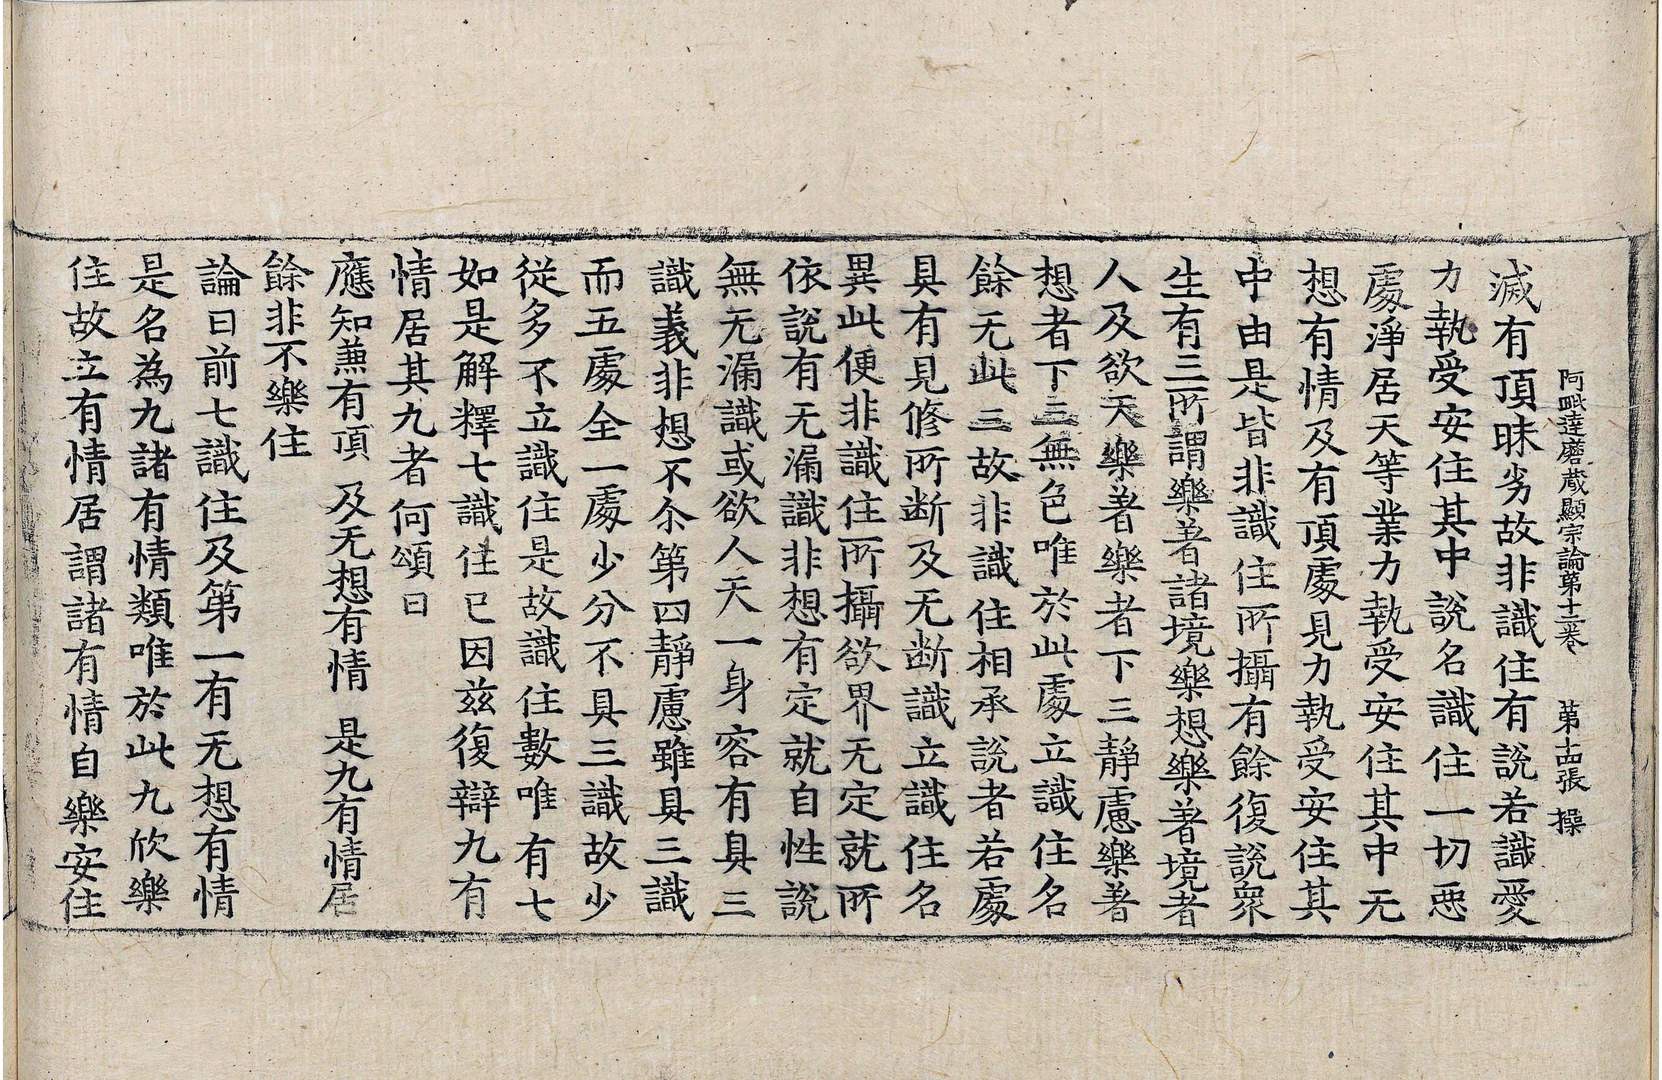 阿毗達磨藏顯宗論第十二卷 第十四張 操
滅有頂昧劣故非識住有說若識愛
力執受安住其中說名識住一切惡
處淨居天等業力執受安住其中无
想有情及有頂處見力執受安住其
中由是皆非識住所攝有餘復說衆
生有三所謂樂著諸境樂想樂著境者
人及欲天樂著樂者下三靜慮樂著
想者下三無色唯於此處立識住名
餘无此三故非識住相承說者若處
具有見修所断及无断識立識住名
異此便非識住所攝欲界无定就所
依說有无漏識非想有定就自性說
無无漏識或欲人天一身容有具三
識義非想不尒第四靜慮雖具三識
而五處全一處少分不具三識故少
從多不立識住是故識住數唯有七
如是解釋七識住已因茲復辯九有
情居其九者何頌曰
應知兼有頂 及无想有情 是九有情居
餘非不樂住
論曰前七識住及第一有无想有情
是名為九諸有情類唯於此九欣樂
住故立有情居謂諸有情自樂安住